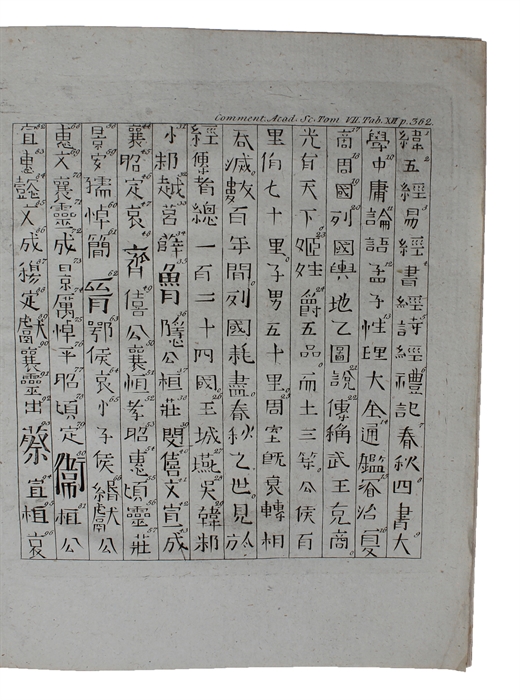 Comment. Acad. Sc. Tom VII. Tab. XII p. 362.
緯五經易經書經詩經禮記春秋四書大
學中庸論語孟子性理大全通鑑資治夏
商周國列國輿地之圖說傳稱武王克商
光有天下姬姓爵五品而土三等公侯百
里伯七十里子男五十里周室旣衰轉相
吞滅數百年間列國耗盡春秋之世見於
經傳者總一百二十四國王城燕吳韓邾
小邾越莒薛魯隱公桓莊閔僖文宣成
襄昭定哀齊僖公襄桓孝昭惠頃靈莊
景安孺悼簡晉鄂侯哀小子侯緡獻公
惠文襄靈成景厲悼平昭頃定衛桓公
宣惠懿文成穆定獻殤襄靈出蔡宣桓哀